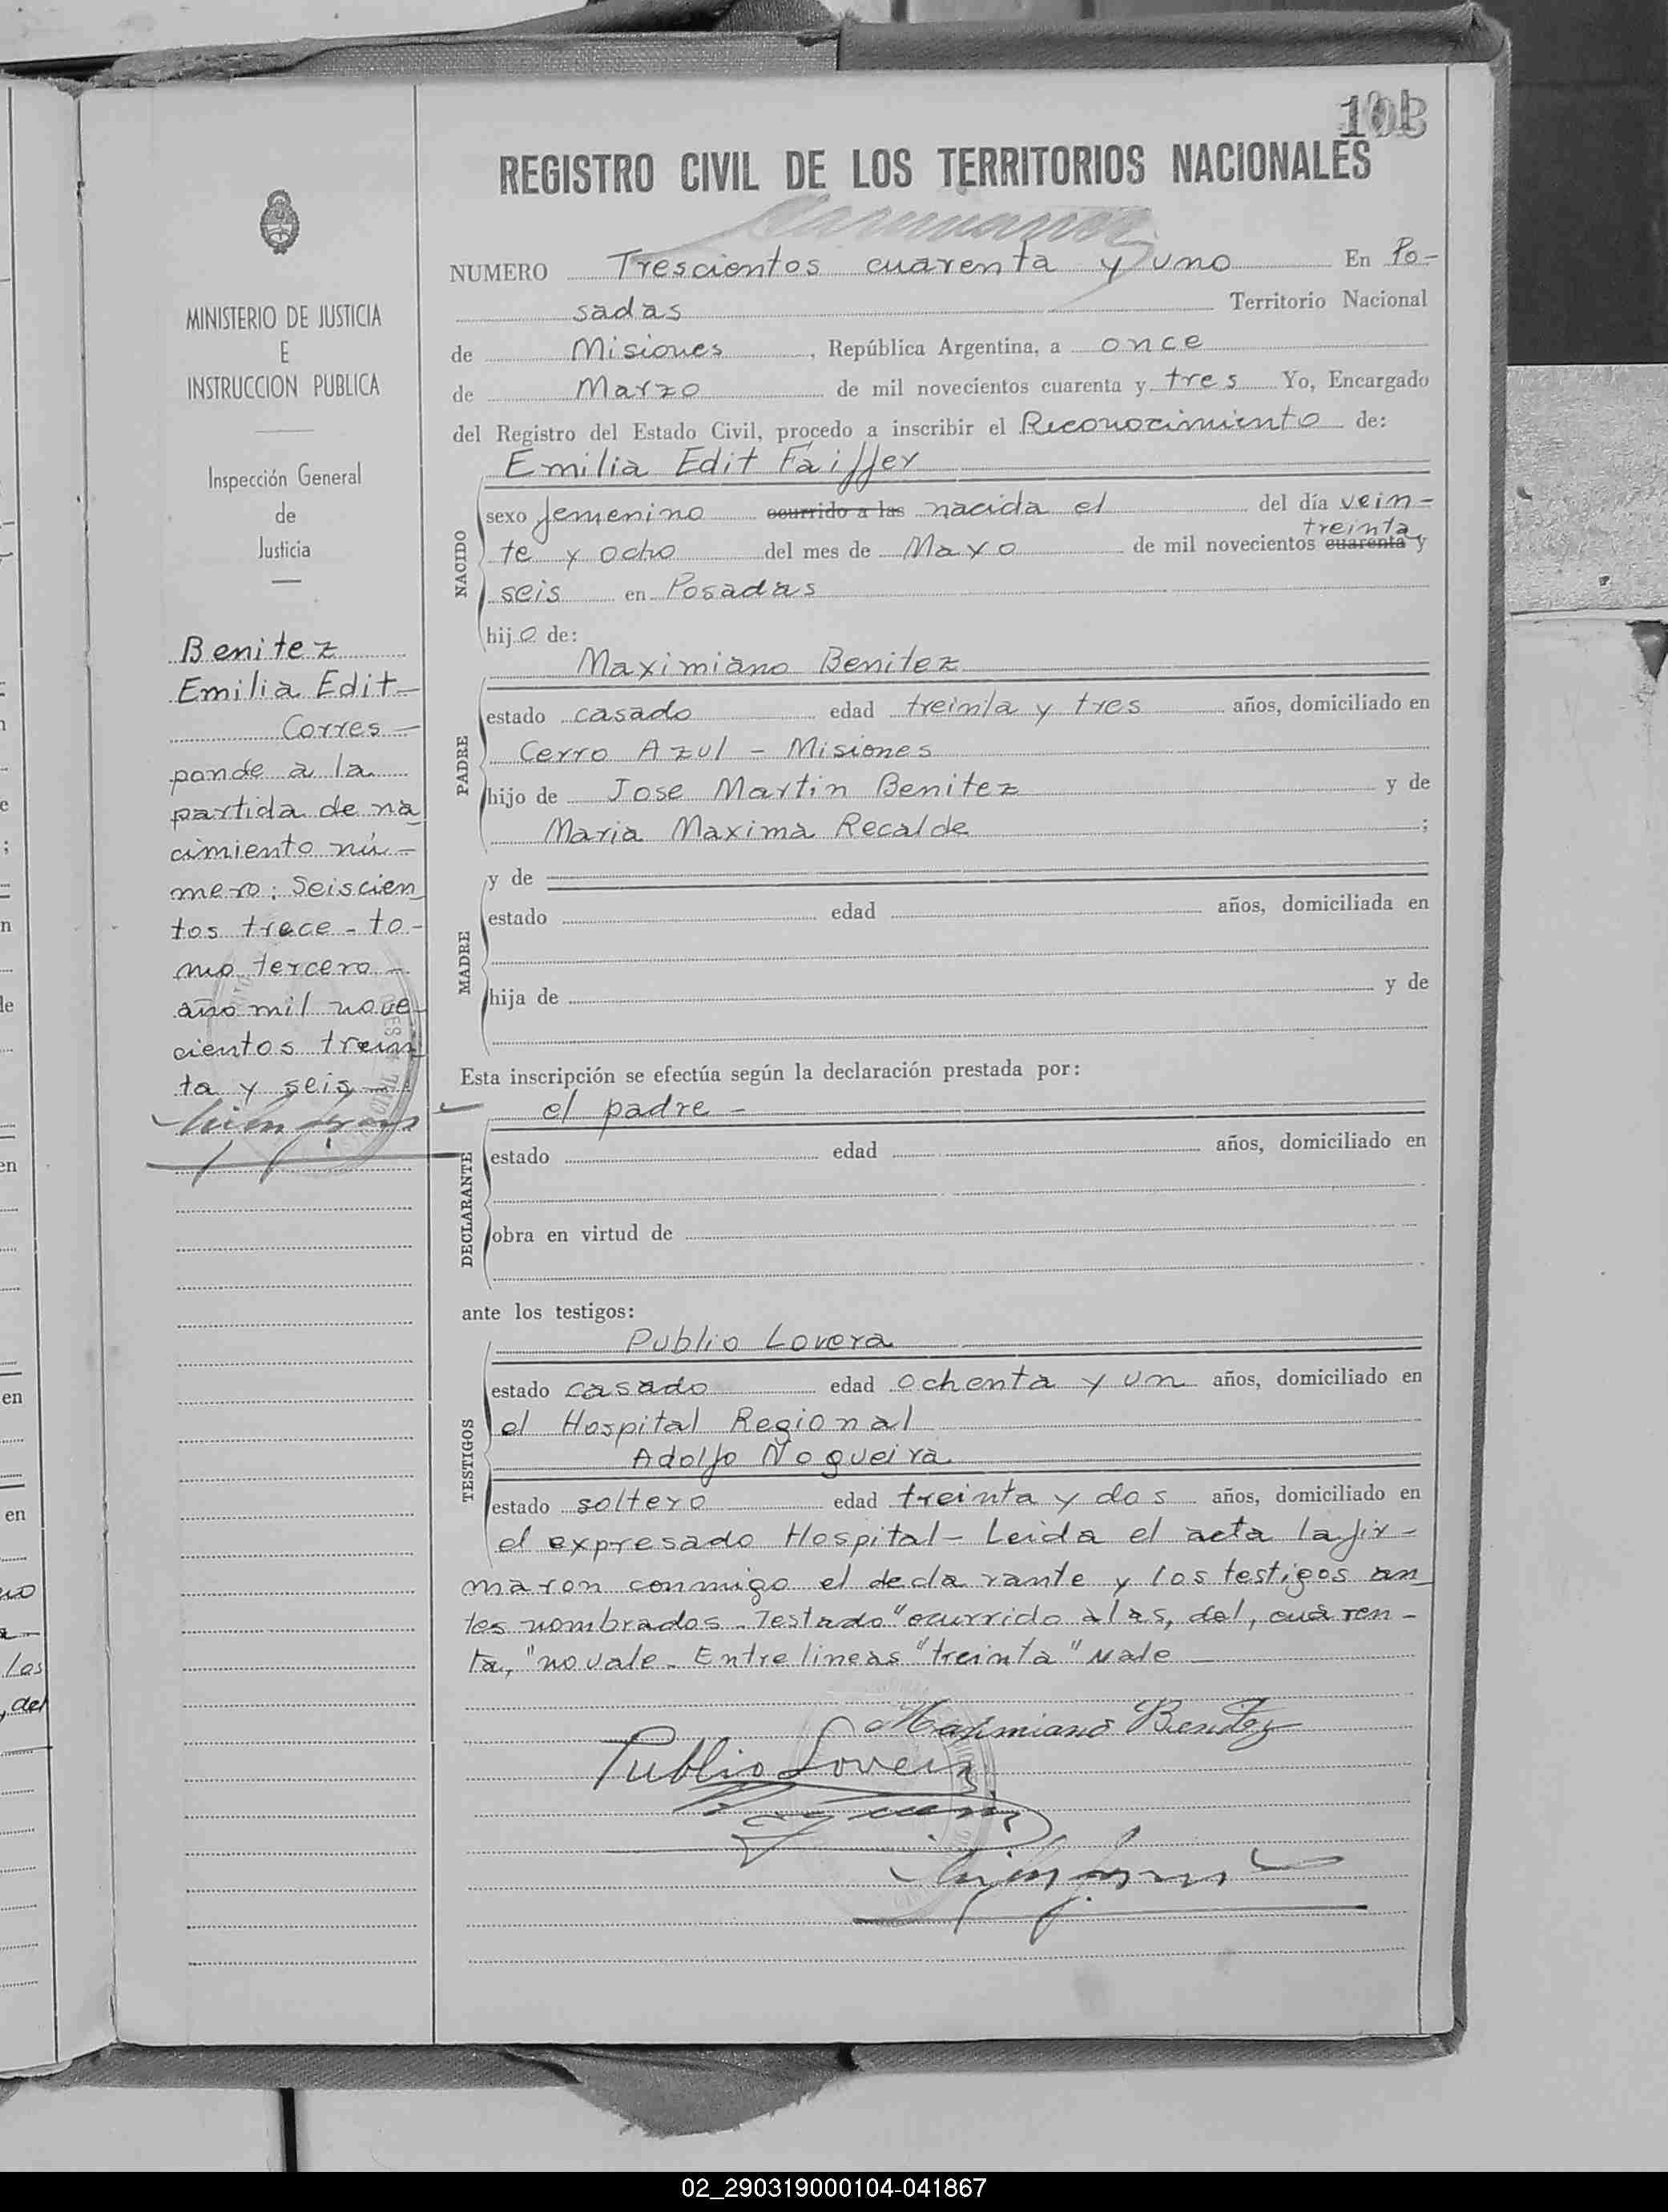 REGISTRO CIVIL DE LOS TERRITORIOS NACIONALES
NUMERO Trescientos cuarenta y uno En Po-
sadas Territorio Nacional
de Misiones, República Argentina, a once
de Marzo de mil novecientos cuarenta y tres Yo, Encargado
del Registro del Estado Civil, procedo a inscribir el Reconocimiento de:
NACIDO
Emilia Edit Faiffer
sexo femenino ocurrido a las nacida el del día vein-
treinta
te y ocho del mes de Mayo de mil novecientos cuarenta y
seis en Posadas
hijo de:
PADRE
Maximiano Benitez
estado casado edad treinta y tres años, domiciliado en
Cerro Azul - Misiones
hijo de Jose Martin Benitez y de
Maria Maxima Recalde ;
MADRE
y de
estado edad años, domiciliada en
hija de y de
Esta inscripción se efectúa según la declaración prestada por:
DECLARANTE
el padre -
estado edad años, domiciliado en
obra en virtud de
ante los testigos:
TESTIGOS
Publio Lovera
estado casado edad ochenta y un años, domiciliado en
el Hospital Regional
Adolfo Nogueira
estado soltero edad treinta y dos años, domiciliado en
el expresado Hospital - Leida el acta la fir-
maron conmigo el declarante y los testigos an
tes nombrados - Testado "ocurrido a las, del, cuaren-
ta," no vale - Entre lineas "treinta" vale
Maximiano Benitez
Publio Lovera
MINISTERIO DE JUSTICIA
E
INSTRUCCION PUBLICA
Inspección General
de
Justicia
Benitez
Emilia Edit -
Corres -
ponde a la
partida de na
cimiento nú-
mero: Seiscien
tos trece - to-
mo tercero -
año mil nove
cientos trein
ta y seis -
02_290319000104-041867